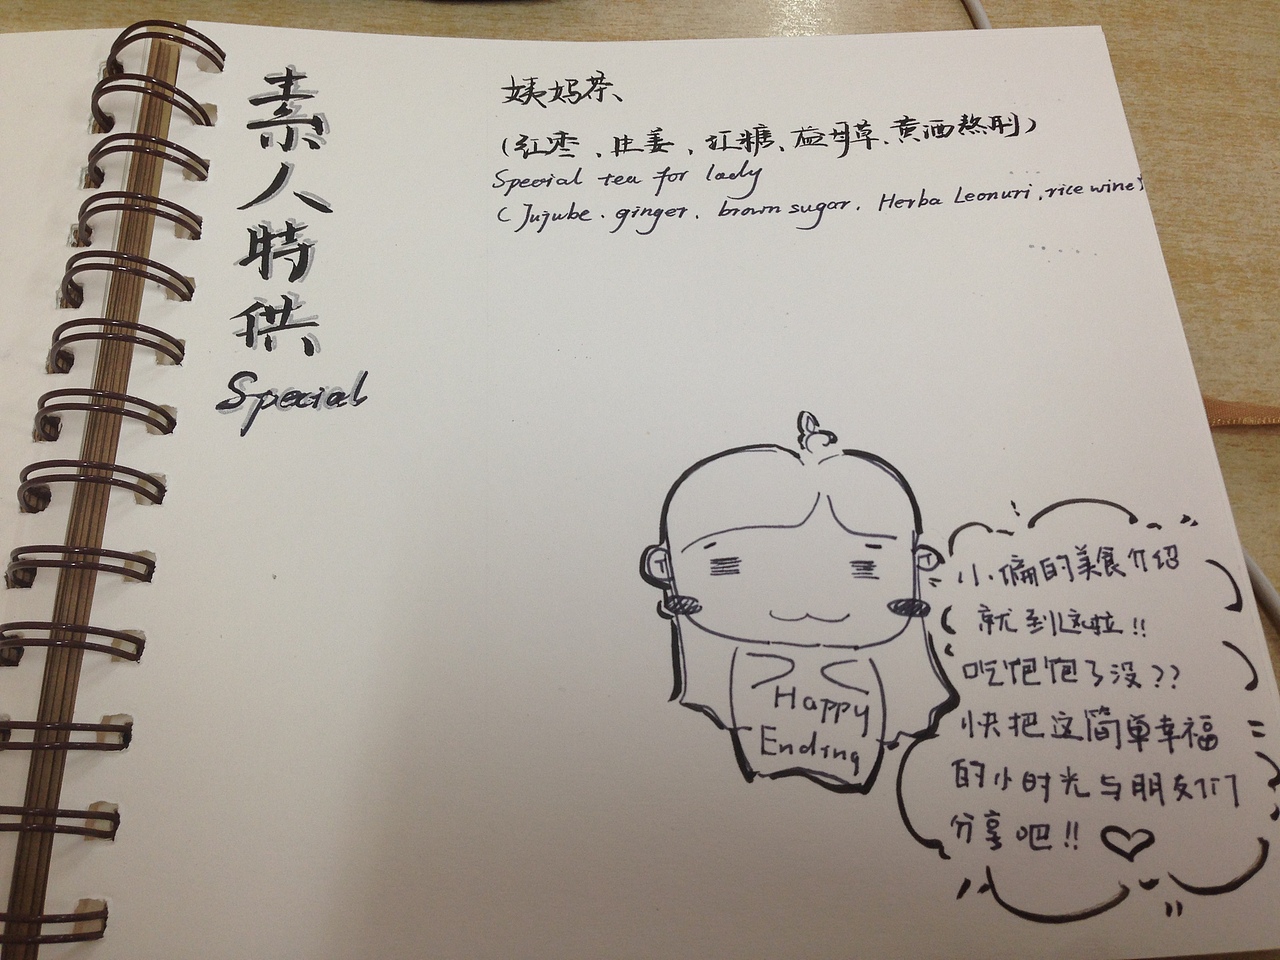 素人特供
Special
姨妈茶
(红枣、生姜、红糖、益母草、黄酒熬制)
Special tea for lady
(Jujube. ginger. brown sugar. Herba Leonuri, rice wine)
Happy
Ending
小编的美食介绍
就到这啦!!
吃饱饱了没??
快把这简单幸福
的小时光与朋友们
分享吧!!